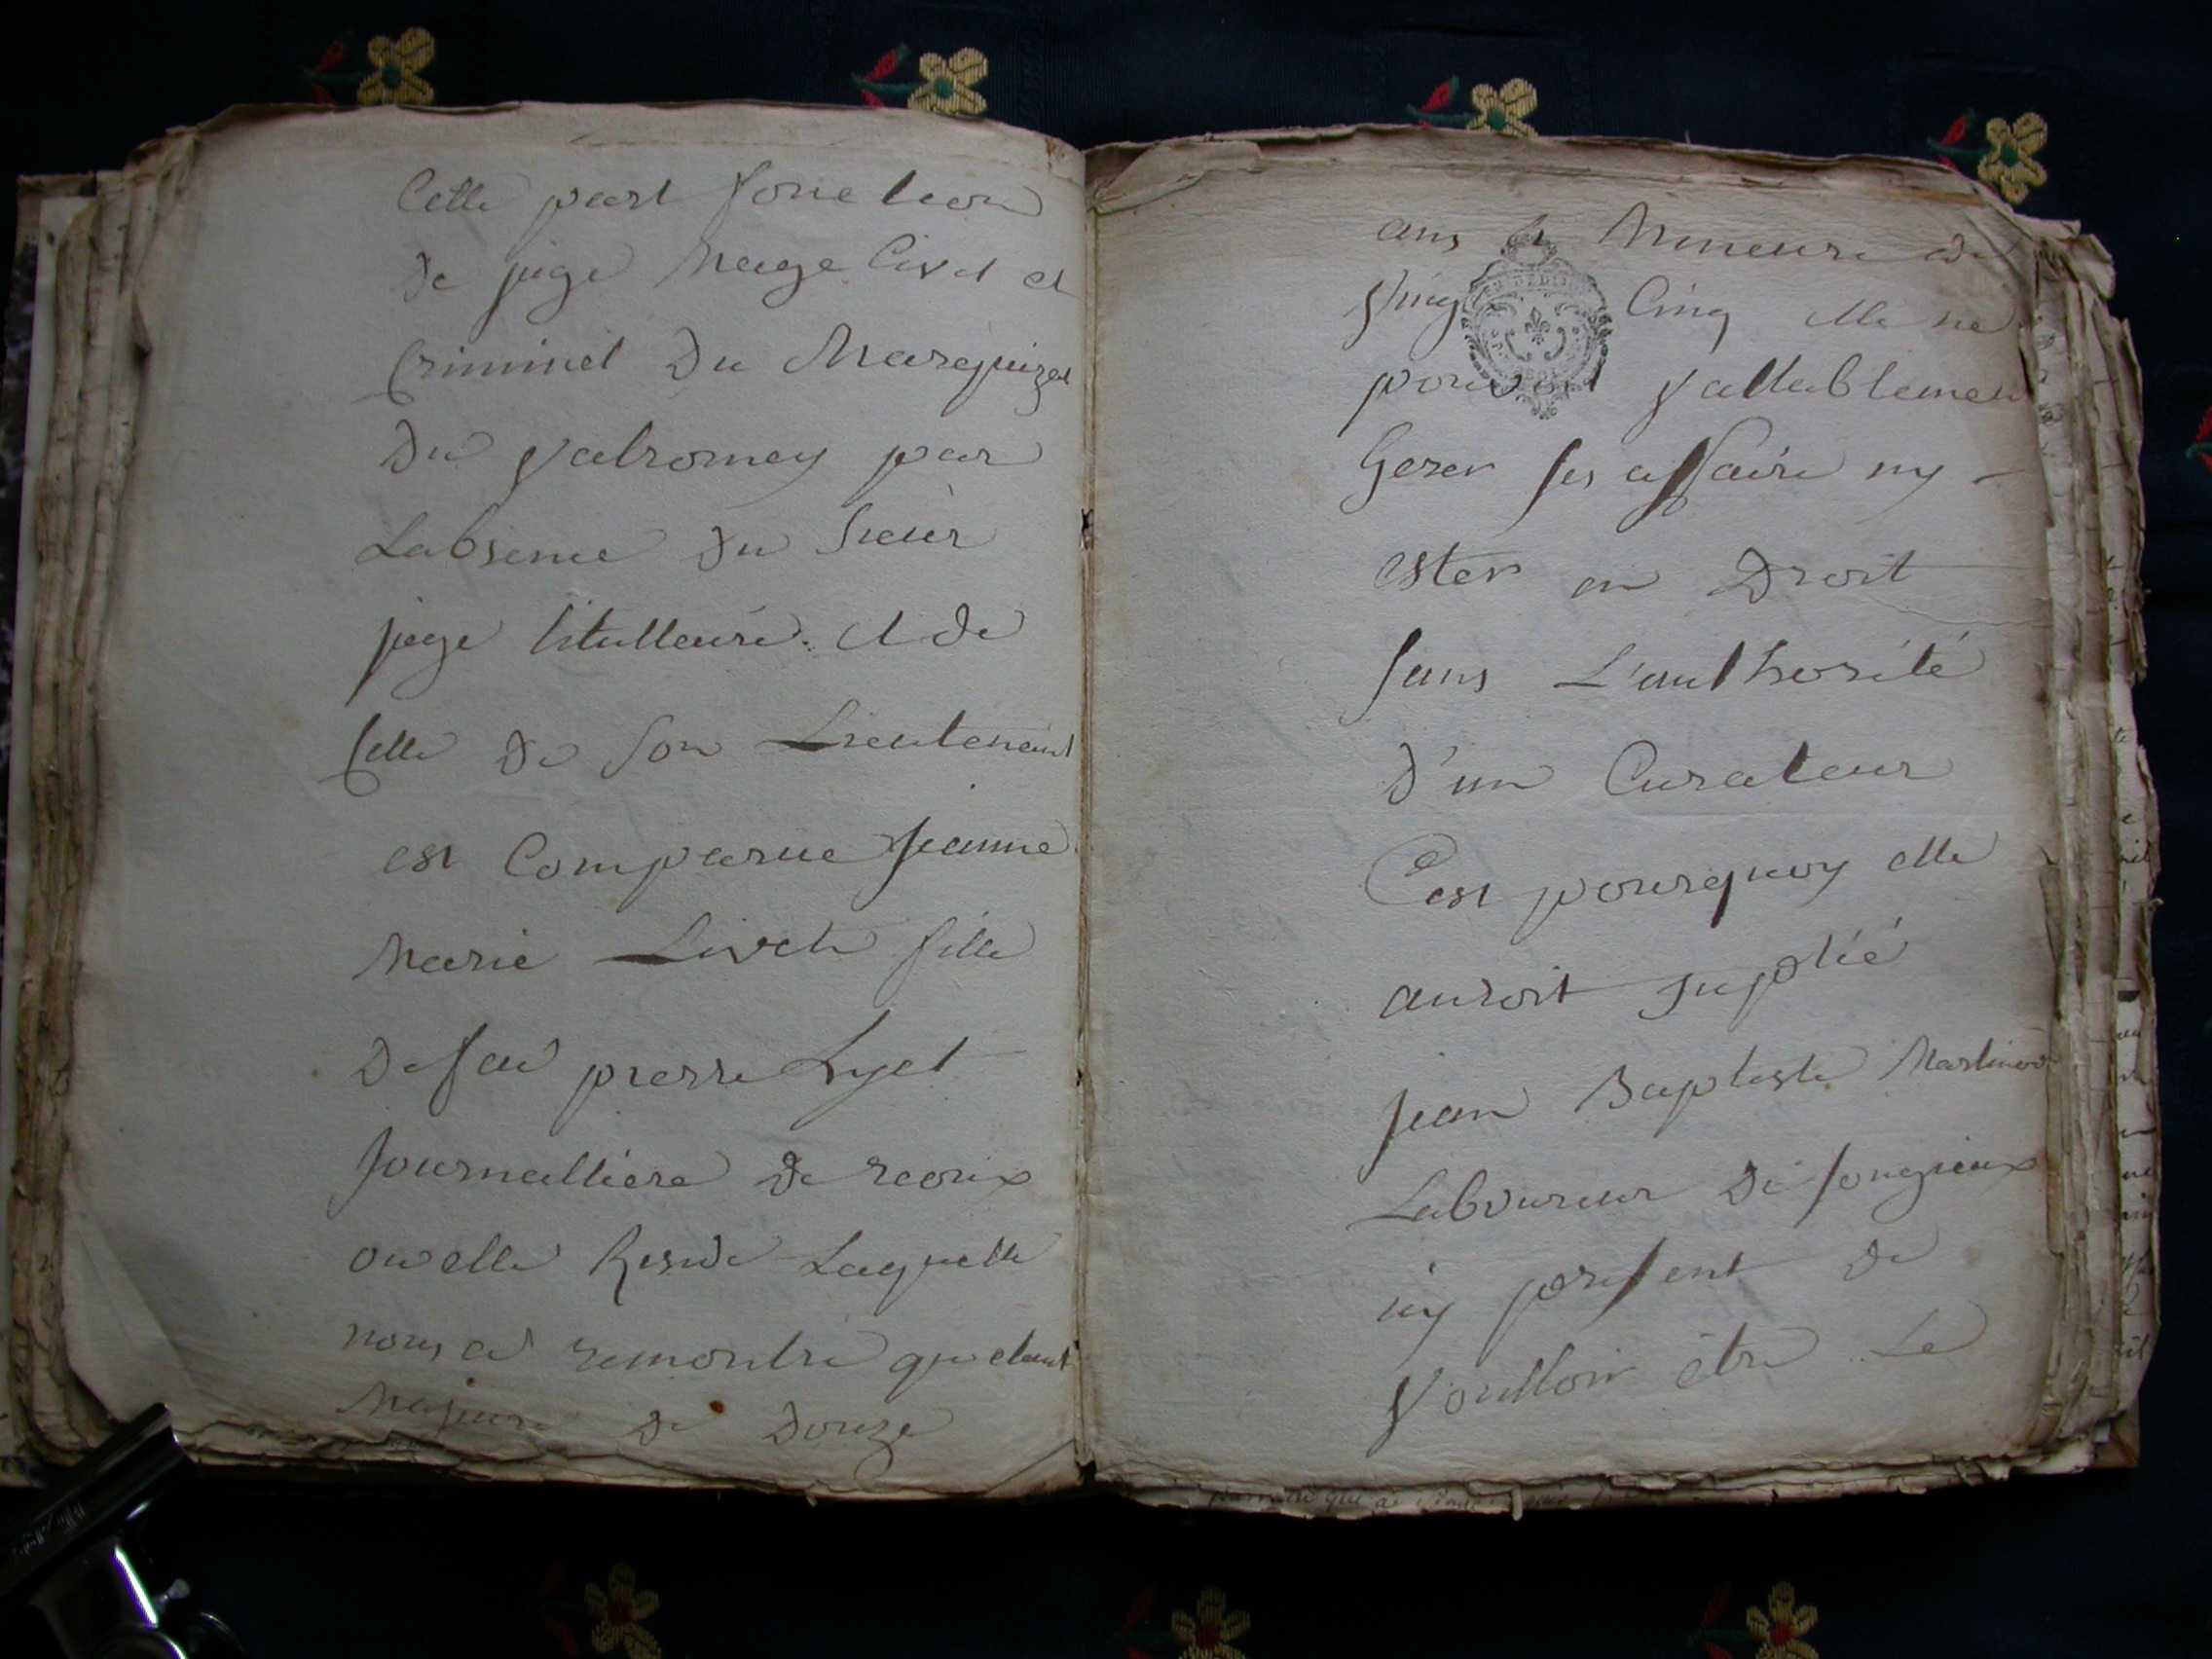 Cette part fonction
de juge Mage Civil et
Criminel Du Marquizat
Du Valromey par
Labsence Du Sieur
juge titullaire et de
Celle De Son Lieutenant
est Comparue Jeanne
Marie Livet fille
De feu pierre Lyvet
Journalliere De
ou elle Reside Laquelle
nous a remontré qu etant
Majeure De Douze
ans et Mineure de
Vingt Cinq elle ne
pouvoit Vallablement
Gerer ses affaire ny
ester en Droit
sans L'authorité
D'un Curateur
C'est pourquoy elle
auroit suplié
jean Baptiste Martinod
Laboureur De songieux
icy present de
Voulloir être Le